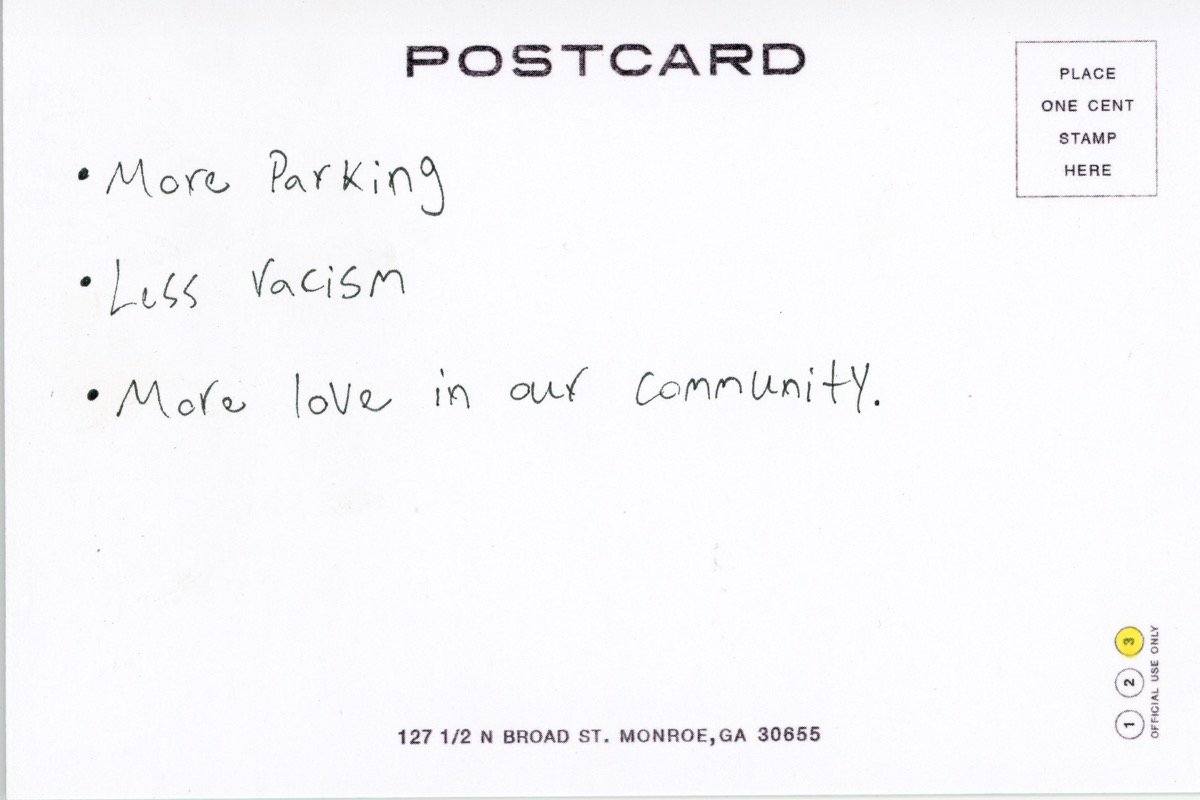 POSTCARD
PLACE
ONE CENT
STAMP
HERE
• More Parking
• Less racism
• More love in our community.
1 2 3
OFFICIAL USE ONLY
127 1/2 N BROAD ST. MONROE, GA 30655